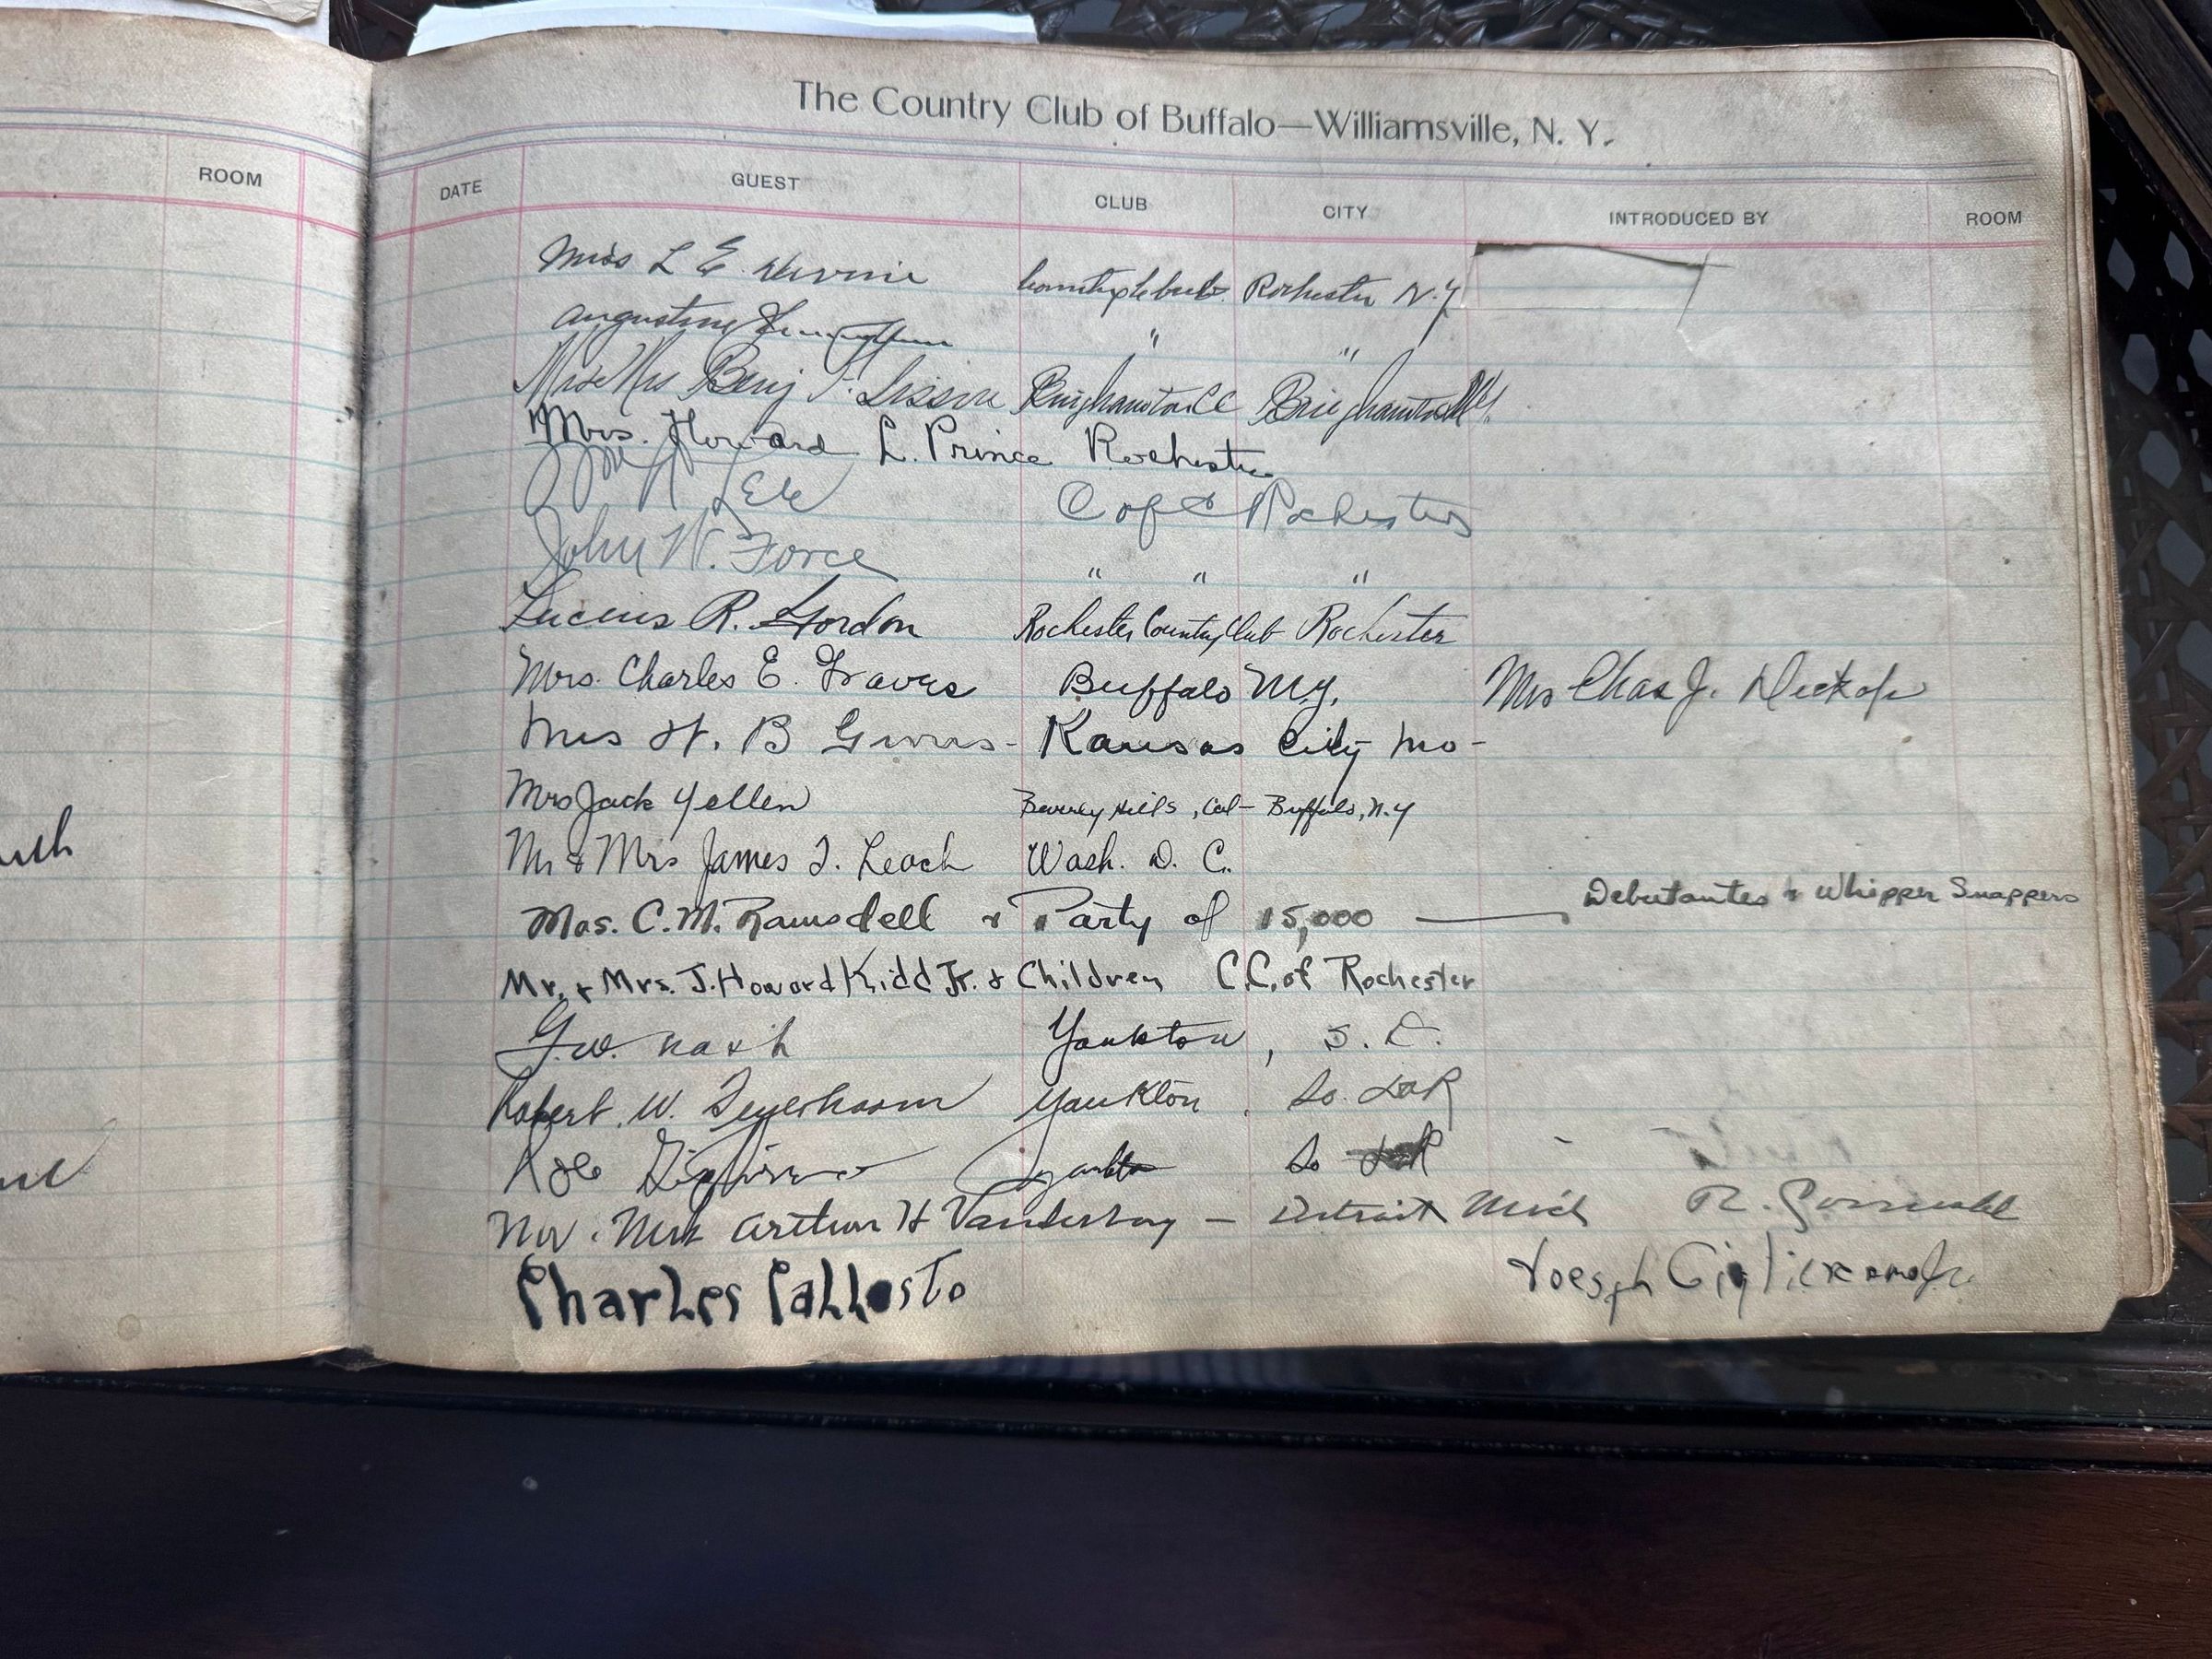 The Country Club of Buffalo—Williamsville, N. Y.
ROOM DATE GUEST CLUB CITY INTRODUCED BY ROOM
Miss L E Country Club. Rochester N.Y.
Augustine " "
Mr & Mrs Benj F. Sisson Binghamton CC Binghamton N.Y.
Mrs. Howard L. Prince Rochester
Lee C of C Rochester
John W. Force " " "
Lucius R. Gordon Rochester Country Club Rochester
Mrs. Charles E. Graves Buffalo N.Y. Mrs Chas J.
Mrs H. B Kansas City Mo-
Mrs Jack Yellen Beverly Hills, Cal - Buffalo, N.Y
Mr & Mrs James J. Leach Wash. D. C.
Mrs. C. M. Ramsdell & Party of 15,000 — Debutantes & Whipper Snappers
Mr. & Mrs. J. Howard Kidd Jr. & Children C.C. of Rochester
G.W. Nash Yankton, S. D.
Robert W. Yankton. So. Dak
So Dak
Arthur H Vandenberg - Detroit Mich R.
Charles Callosto